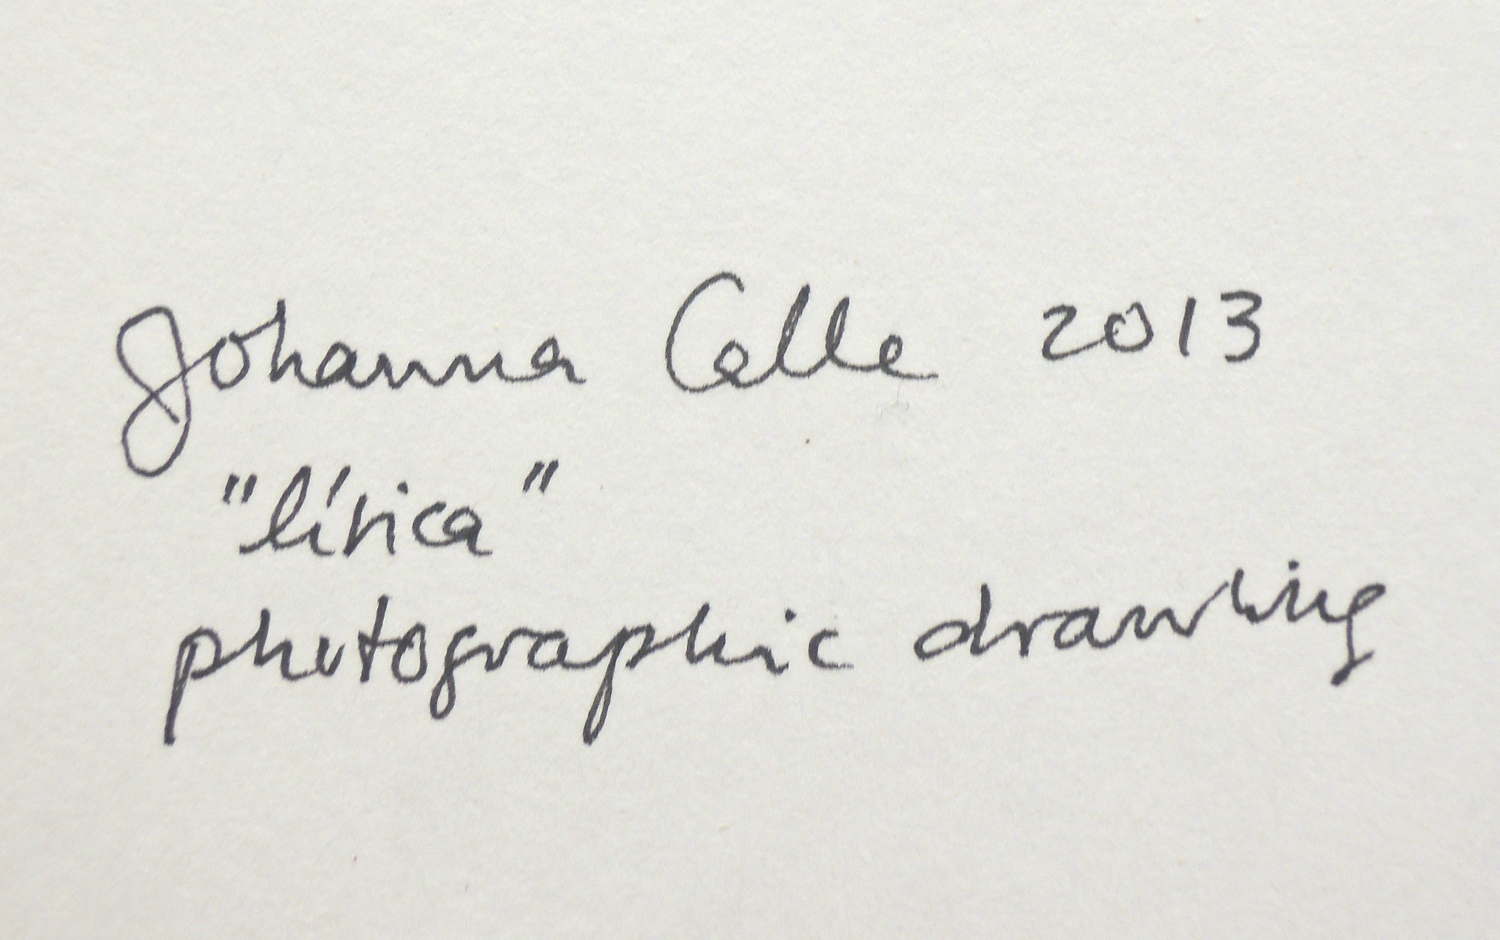 Johanna Calle 2013
"lírica"
photographic drawing